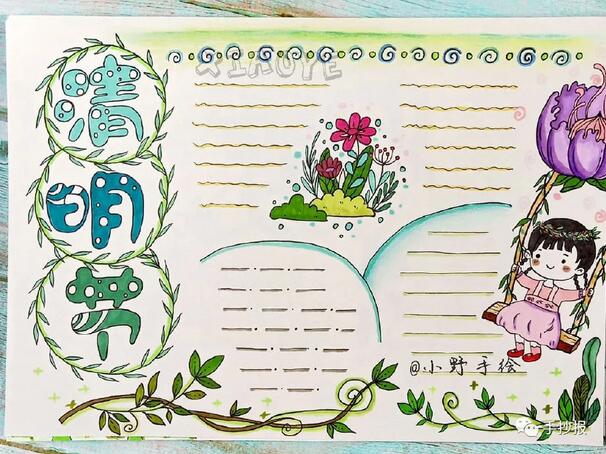 清明节
XIAOYE
@小野手绘
手抄报